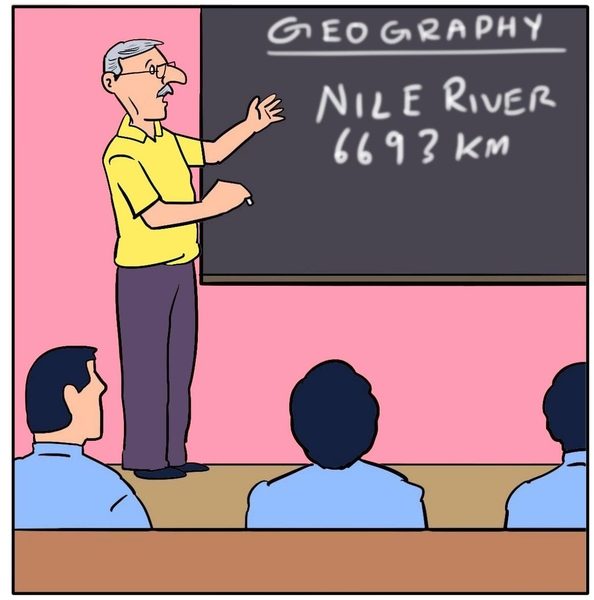 GEOGRAPHY
NILE RIVER
6693 KM